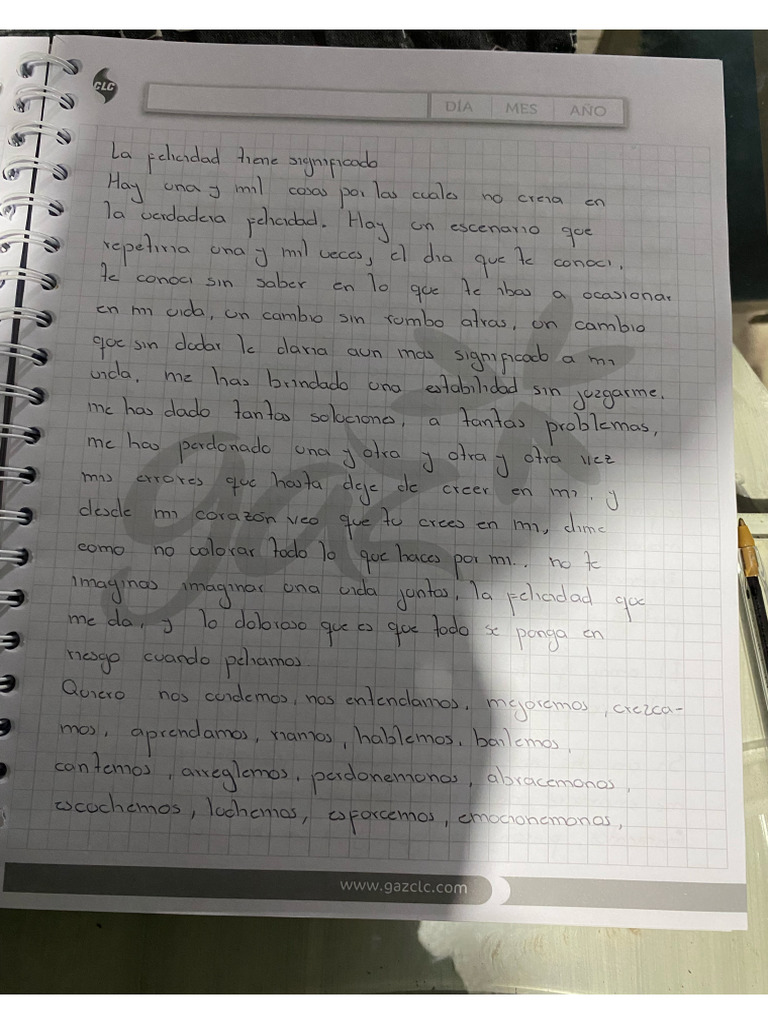 CLC
DÍA MES AÑO
La felicidad tiene significado
Hay una y mil cosas por las cuales no creria en
la verdadera felicidad. Hay un escenario que
repetiria una y mil veces, el dia que te conoci.
te conoci sin saber en lo que te ibas a ocasionar
en mi vida, un cambio sin rumbo atras, un cambio
que sin dudar le daria aun mas significado a mi
vida, me has brindado una estabilidad sin juzgarme.
me has dado tantas soluciones, a tantas problemas,
me has perdonado una y otra y otra y otra vez
mis errores que hasta deje de creer en mi, y
desde mi corazón veo que tu crees en mi, dime
como no valorar todo lo que haces por mi.. no te
imaginas imaginar una vida juntos, la felicidad que
me da, y lo doloroso que es que todo se ponga en
riesgo cuando peliamos
Quiero nos cuidemos, nos entendamos, mejoremos, crezca-
mos, aprendamos, riamos, hablemos, bailemos,
cantemos, arreglemos, perdonemonos, abracemonos,
escuchemos, luchemos, esforcemos, emocionemonos,
gaz
www.gazclc.com